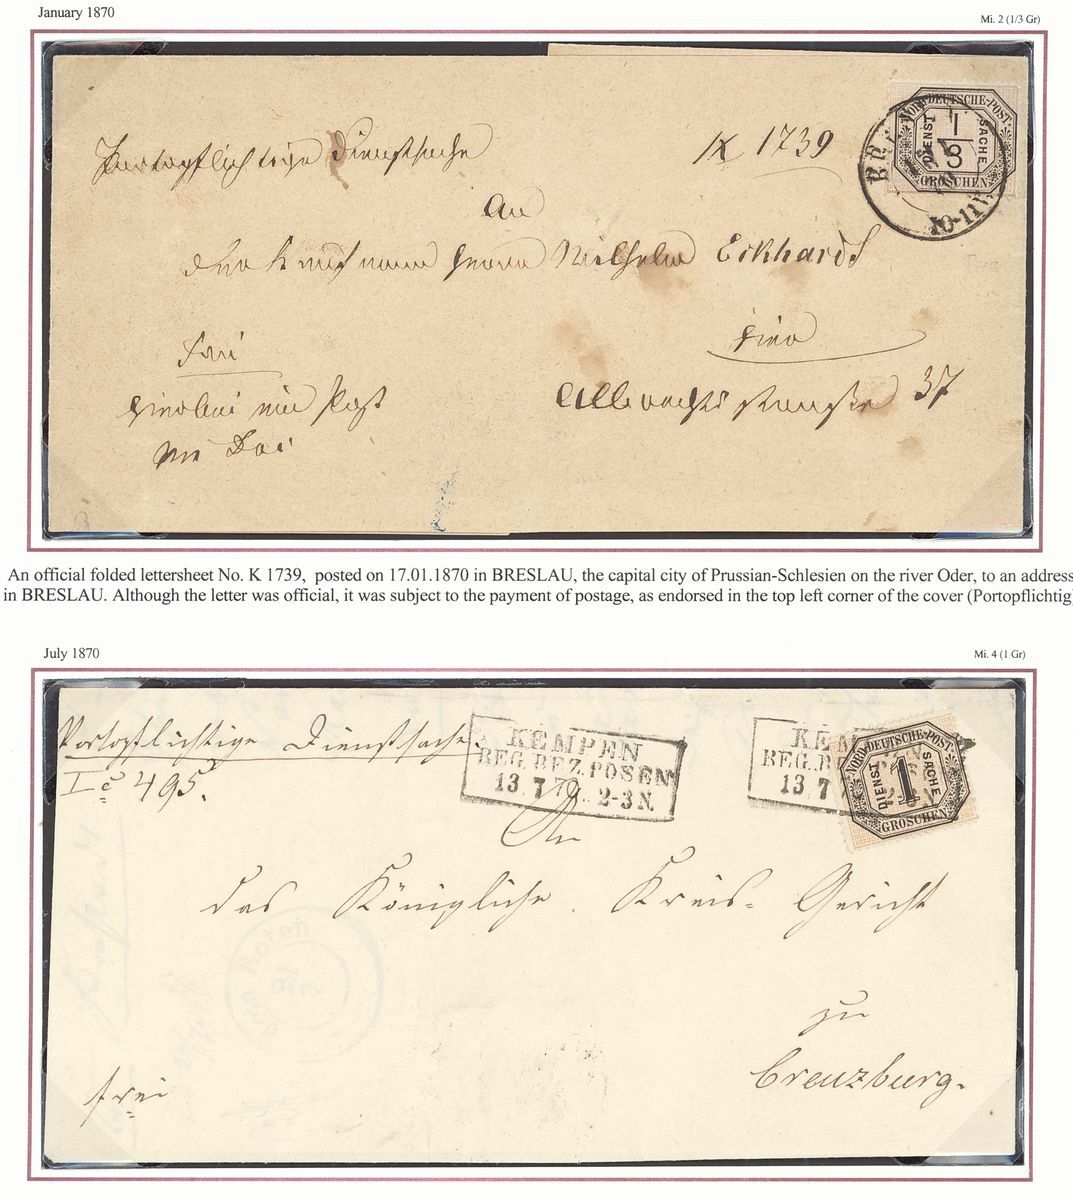 January 1870
Mi. 2 (1/3 Gr)
Portopflichtige Dienstsache
K 1739
NORDDEUTSCHE-POST
DIENST
SACHE
1/3
GROSCHEN
10-11V.
An
den Kaufmann Herrn Wilhelm Eckhardt
hier
frei
Albrechts Strasse 37
An official folded lettersheet No. K 1739, posted on 17.01.1870 in BRESLAU, the capital city of Prussian-Schlesien on the river Oder, to an address
in BRESLAU. Although the letter was official, it was subject to the payment of postage, as endorsed in the top left corner of the cover (Portopflichtig
July 1870
Mi. 4 (1 Gr)
Portopflichtige Dienstsache
I c 495.
KEMPEN
REG. BEZ. POSEN
13 7 70 2-3 N.
KEM
REG. B
13 7
NORDDEUTSCHE-POST
DIENST
SACHE
1
GROSCHEN
An
das Königliche Kreis-Gericht
zu
Creuzburg.
frei